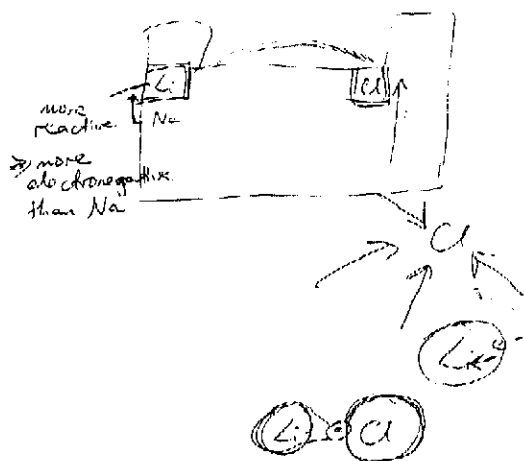 Li
Cl
more
reactive
Na
⇒ more
electronegative
than Na
Cl
Li
Li
Cl